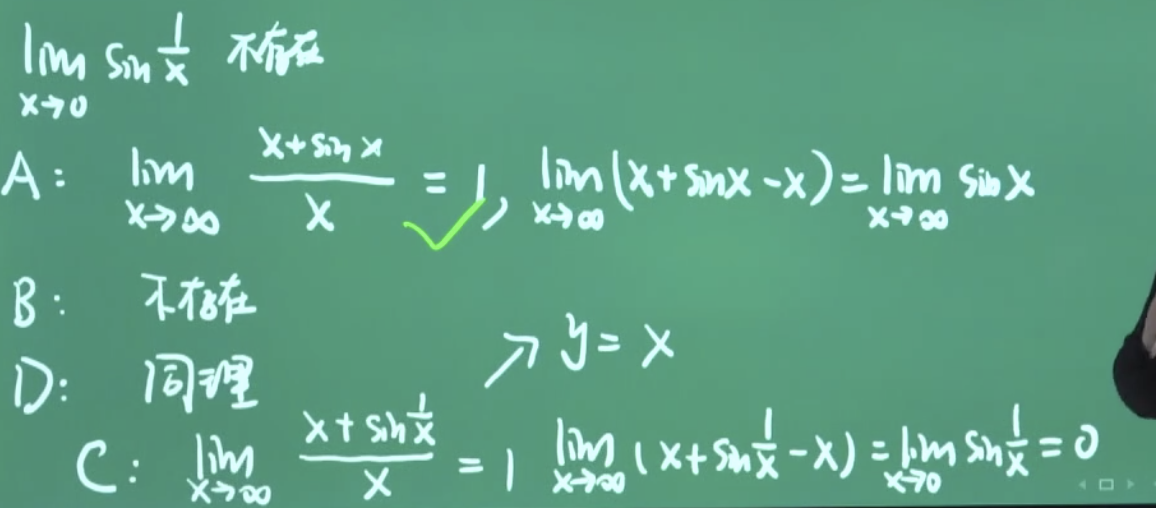 lim x→0 sin 1/x 不存在
A: lim x→∞ (x+sin x)/x = 1, lim x→∞ (x+sinx-x) = lim x→∞ sin x
B: 不存在
↗ y = x
D: 同理
C: lim x→∞ (x+sin 1/x)/x = 1 lim x→∞ (x+sin 1/x -x) = lim x→0 sin 1/x = 0